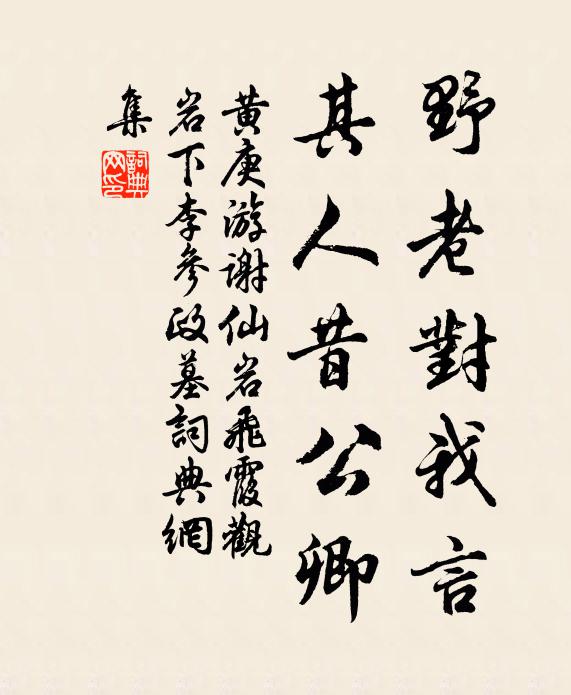 野老對我言
其人昔公卿
黄庚游谢仙岩飛霞觀
岩下李參政墓詞典網
集
詞典网印